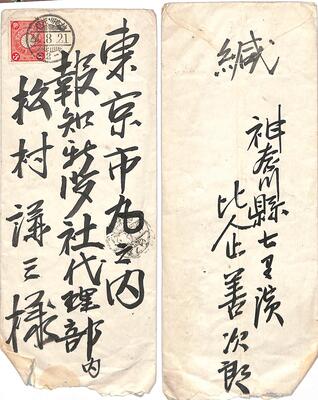 8 21
東京市丸之内
報知新聞社代理部内
松村謙三様
緘
神奈川縣七里濱
比企善次郎